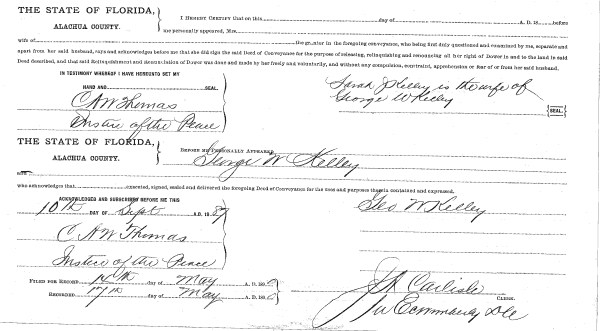 THE STATE OF FLORIDA,
ALACHUA COUNTY.
I HEREBY CERTIFY that on this day of A. D. 18 before
me personally appeared, Mrs.
wife of the grantor in the foregoing conveyance, who being first duly questioned and examined by me, separate and
apart from her said husband, says and acknowledges before me that she did sign the said Deed of Conveyance for the purpose of releasing, relinquishing and renouncing all her right of Dower in and to the land in said
Deed described, and that said Relinquishment and Renunciation of Dower was done and made by her freely and voluntarily, and without any compulsion, constraint, apprehension or fear of or from her said husband.
IN TESTIMONY WHEREOF I HAVE HEREUNTO SET MY
HAND AND SEAL
C A W Thomas
Justice of the Peace
Sarah J Kelley is the wife of
George W Kelley
SEAL.
THE STATE OF FLORIDA,
ALACHUA COUNTY.
BEFORE ME PERSONALLY APPEARED
George W Kelley
who acknowledges that executed, signed, sealed and delivered the foregoing Deed of Conveyance for the uses and purposes therein contained and expressed.
ACKNOWLEDGED AND SUBSCRIBED BEFORE ME THIS
10th DAY OF Sept A.D. 18
C A W Thomas
Justice of the Peace
Geo W Kelley
FILED FOR RECORD day of May A. D. 18
RECORDED 17th day of May A. D. 18
Carlisle
CLERK.